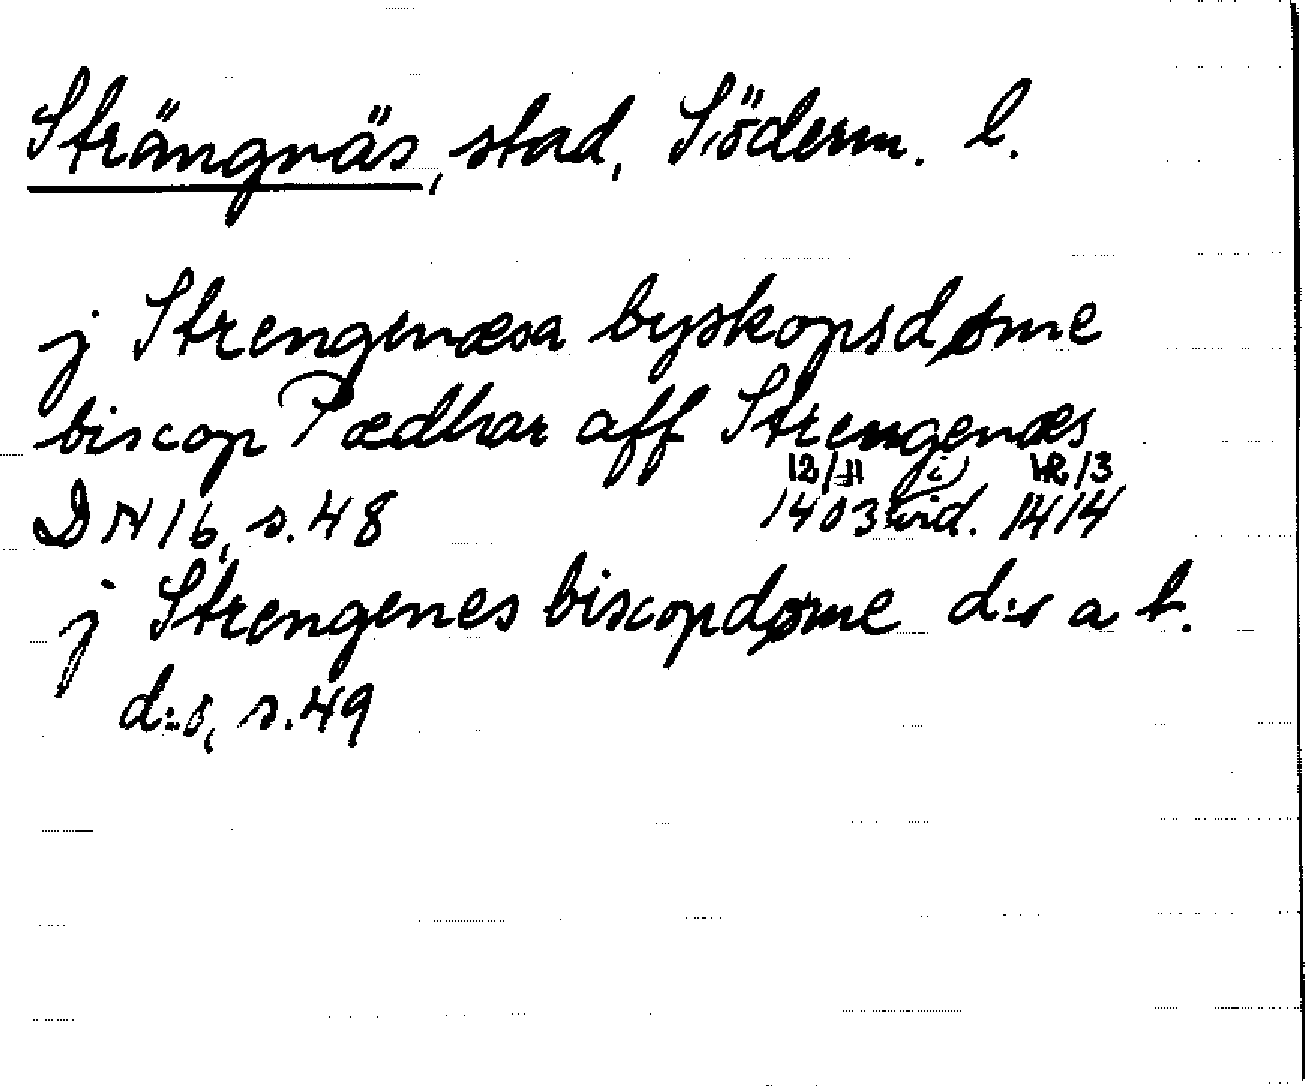 Strängnäs, stad, Söderm. l.
j Strengenæsa byskopsdøme
biscop Pædhar aff Strengenæs
12/11 i 12/3
DN 16, s. 48 1403 vid. 1414
j Strengenes biscopdøme d:o a t.
d:o, s. 49